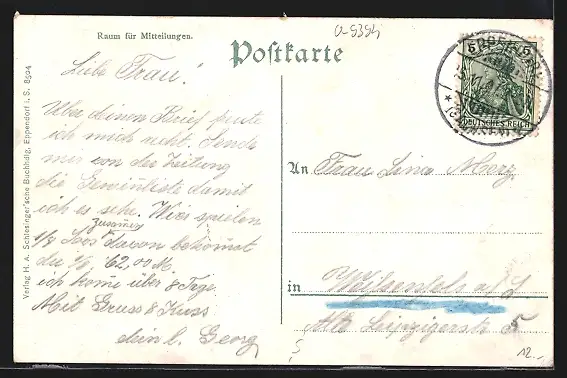 Raum für Mitteilungen.
a-5354
Postkarte
Liebe Frau!
Über deinen Brief freute
ich mich recht. Sende
mir von der Zeitung
die Gewinnliste damit
ich es sehe. Wir spielen
zusammen
1/8 Loos davon bekommst
die 1/2 62,00 M.
ich kome über 8 Tage
Mit Gruss & Kuss
dein l. Georg
An Frau Lina Merz
in Weißenfels a/S
Alte Leipzigerstr 5
5 5
DEUTSCHES REICH
EPPENDORF
Verlag H. A. Schlesinger'sche Buchhdlg, Eppendorf i. S. 8904
12.-